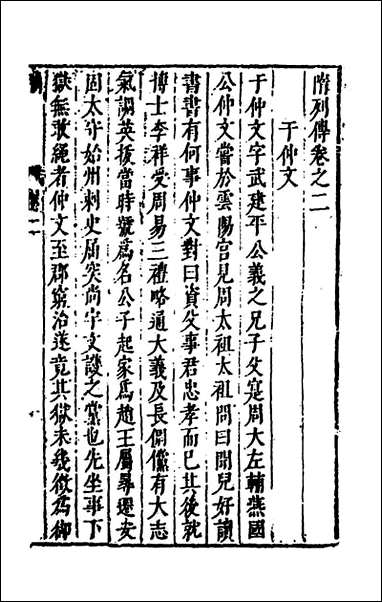 隋列傳卷之二
于仲文
于仲文字武建平公義之兄子父寔周大左輔燕國
公仲文嘗於雲陽宮見周太祖太祖問曰聞兒好讀
書書有何事仲文對曰資父事君忠孝而已其後就
博士李祥受周易三禮略通大義及長倜儻有大志
氣調英拔當時號為名公子起家為趙王屬尋遷安
固太守始州刺史屈突尚宇文護之黨也先坐事下
獄無敢繩者仲文至郡窮治遂竟其獄未幾徵為御